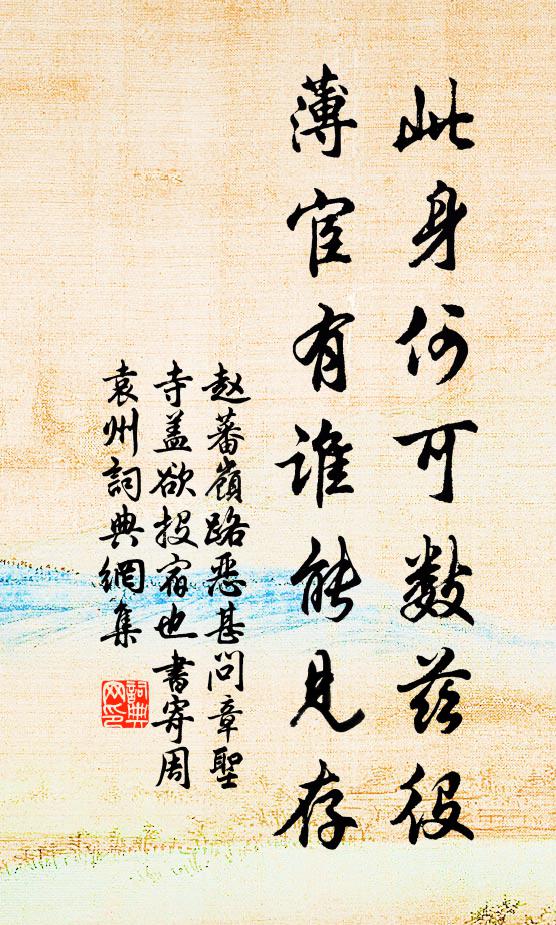 此身何可數茲役
薄宦有誰能見存
赵蕃嶺路恶甚問章聖
寺盖欲投宿也書寄周
袁州詞典網集
詞典
网印